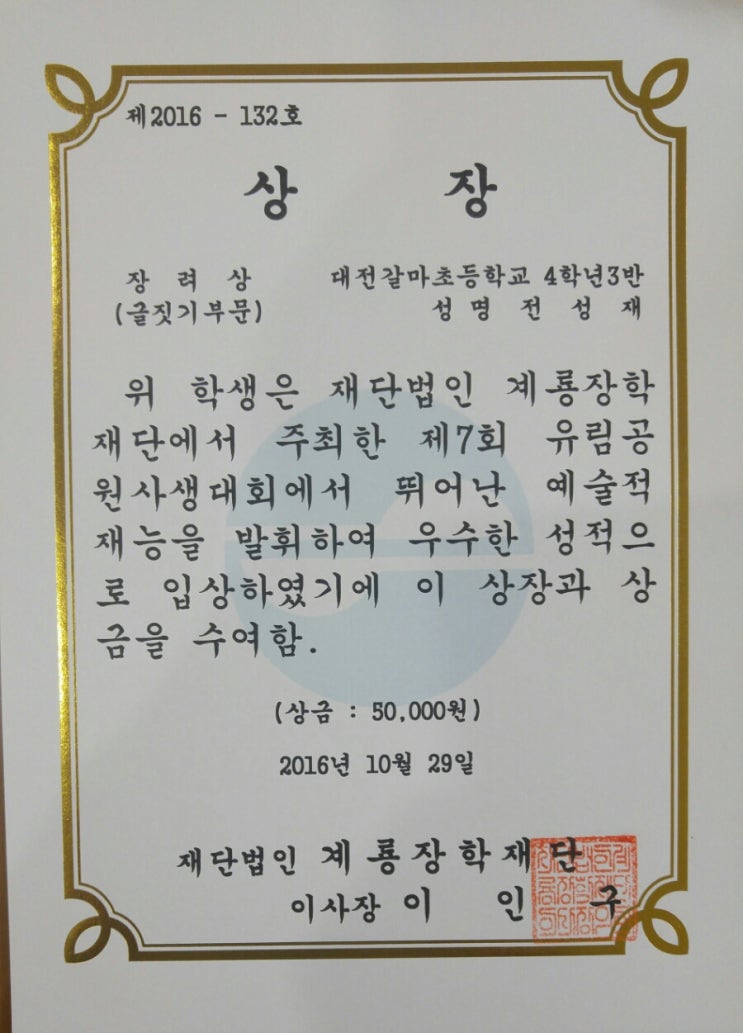 제2016 - 132호
상 장
장 려 상
(글짓기부문)
대전갈마초등학교 4학년3반
성 명 전 성 재
위 학생은 재단법인 계룡장학
재단에서 주최한 제7회 유림공
원사생대회에서 뛰어난 예술적
재능을 발휘하여 우수한 성적으
로 입상하였기에 이 상장과 상
금을 수여함.
(상금 : 50,000원)
2016년 10월 29일
재단법인 계룡장학재단
이사장 이 인 구